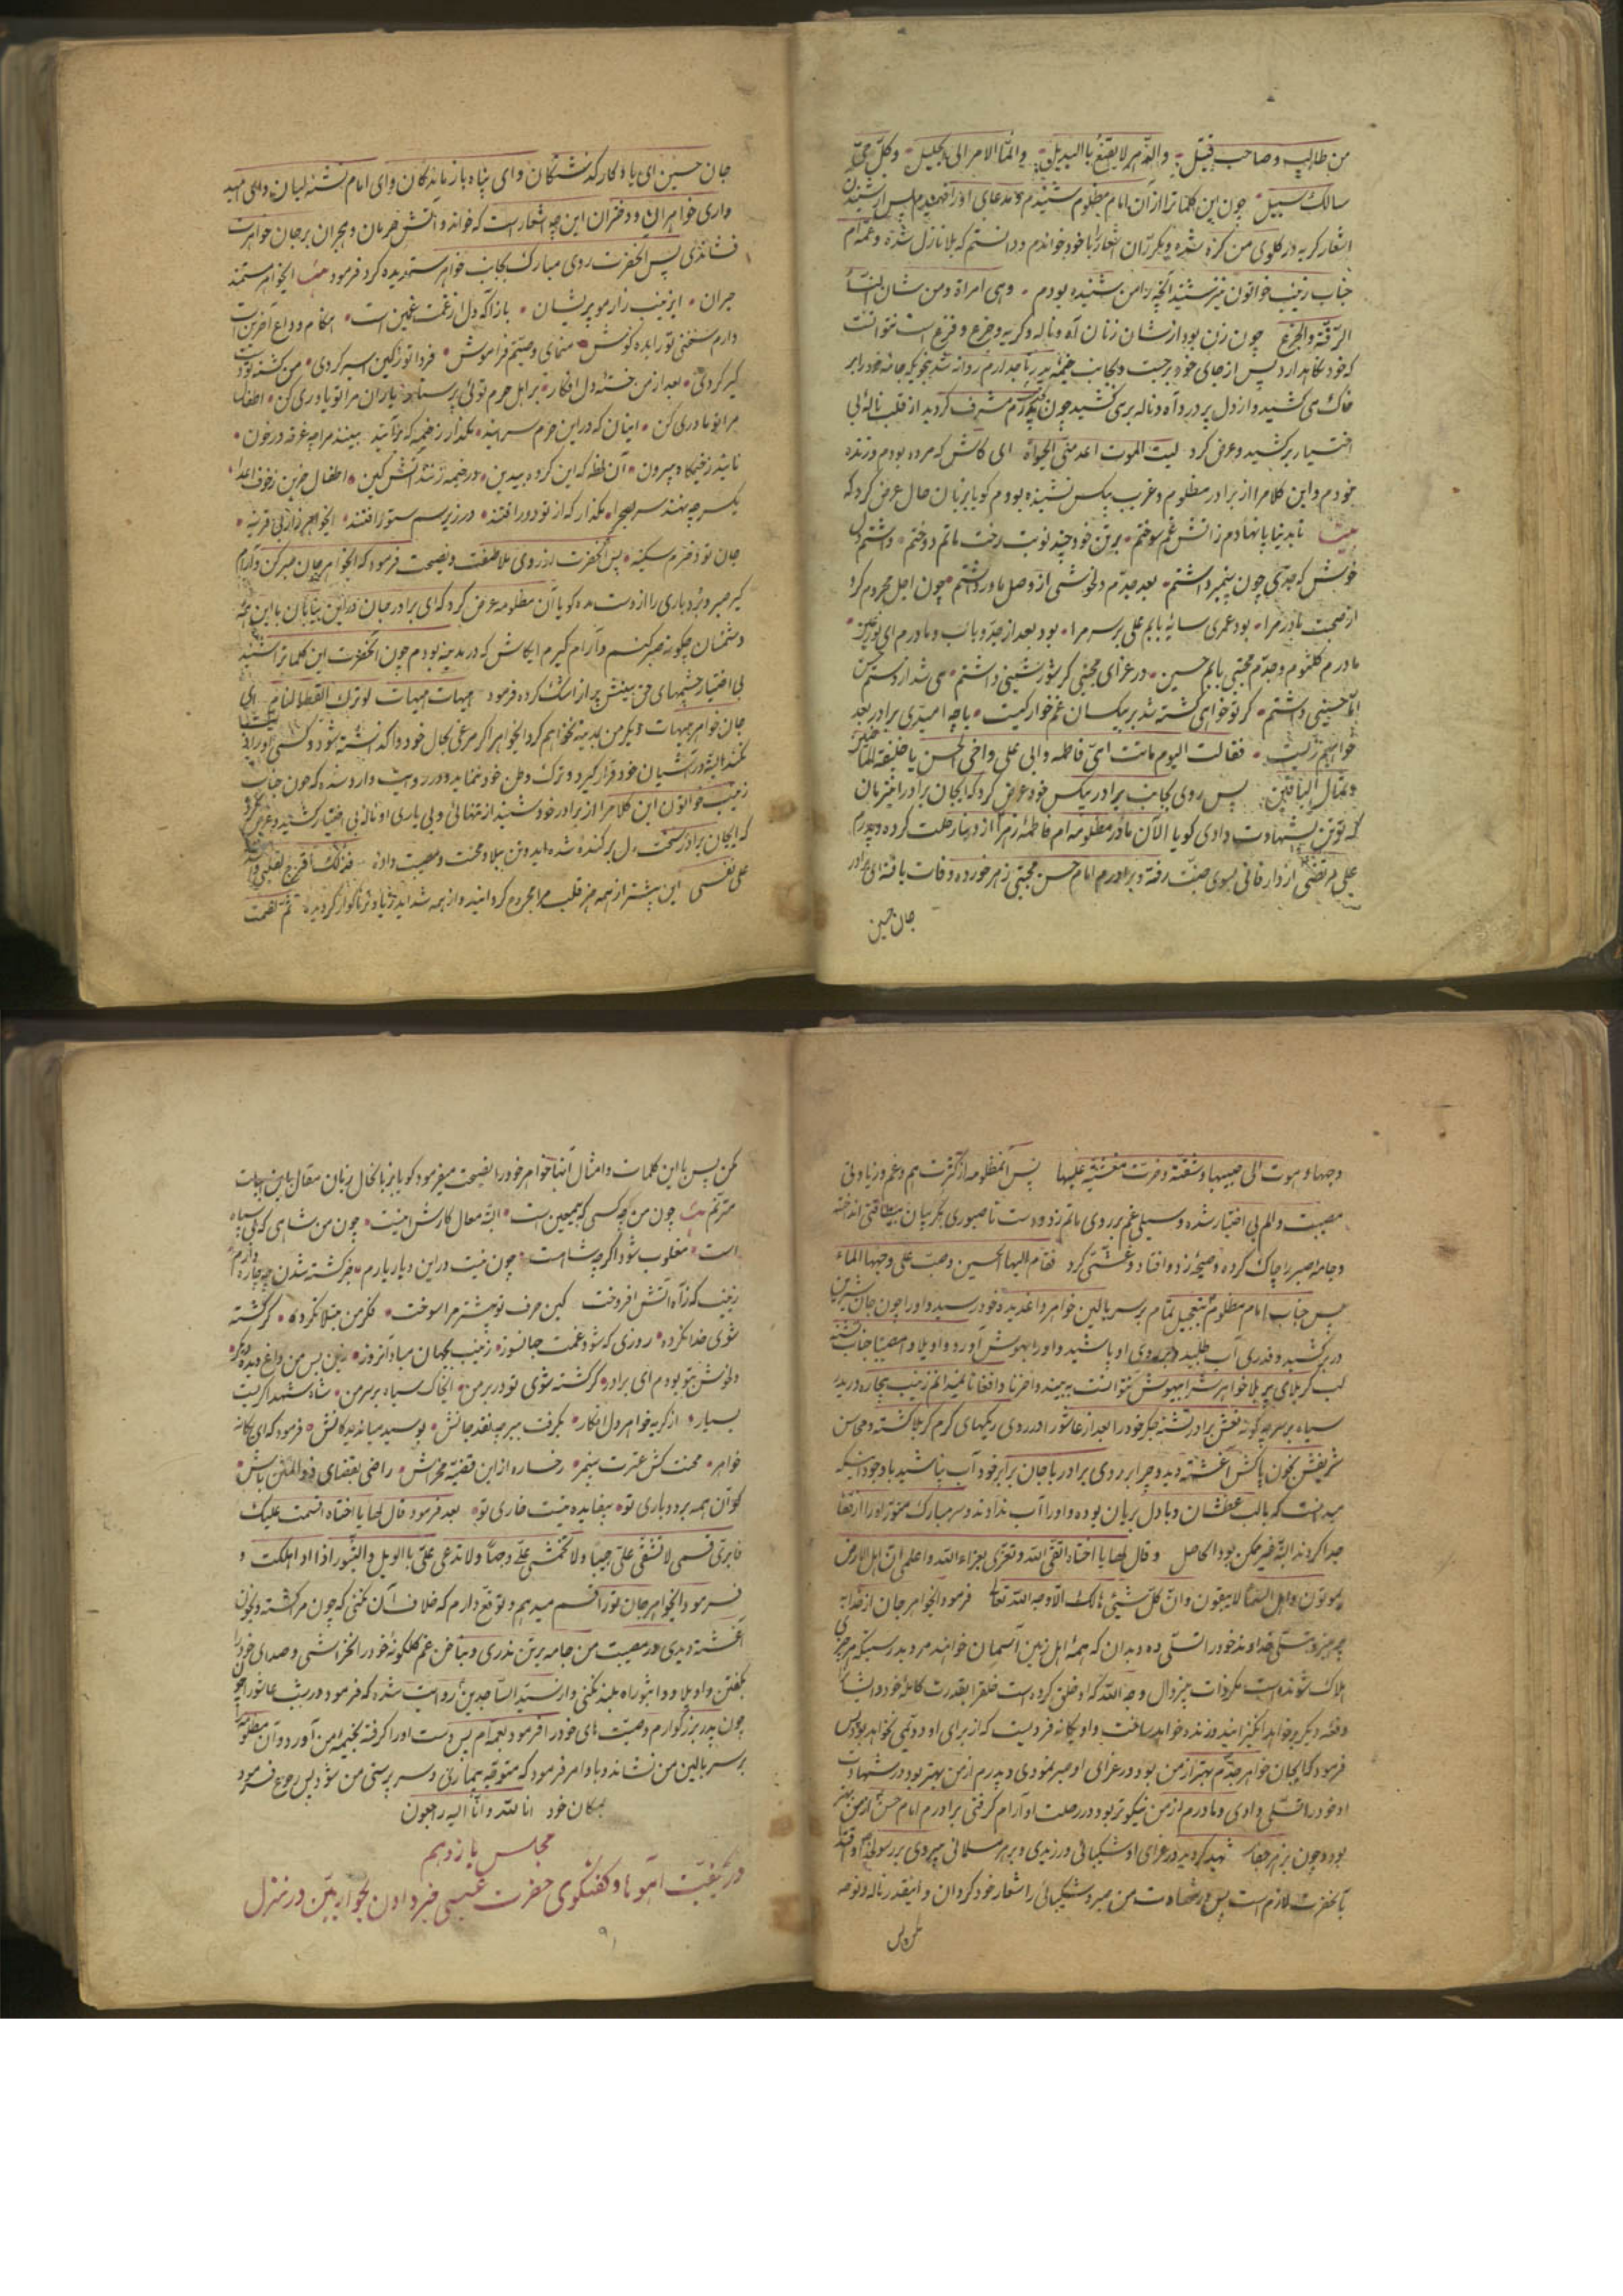 من طالب و صاحب قتیل والدهر لا یقنع بالبدیل وانما الامر الی الجلیل وکل حی
سالک سبیل چون این کلماترا از آن امام مظلوم شنیدم و مدعای او را فهمیدم پس از شنیدن
اشعار گریه در گلوی من گره شده و یکر زآن اشعار را با خود خواندم و دانستم که بلا نازل شده و عمه‌ام
جناب زینب خواتون نیز شنید آنچه را من شنیده بودم وهی امراة ومن شان النساء
الرقة والجزع چون زن بود از شان زنان آه و ناله و گریه و جزع و فزع است نتوانست
که خود نگاهدارد پس از جای خود برجست و بجانب خیمه پدر بزرگوارم روانه شد بنحویکه جامهٔ خود را بر
خاک می کشید و از دل پر درد آه و ناله برمی کشید چون بخیمه پدرم مشرف گردید از قلب ناله بی
اختیار برکشید و عرض کرد لیت الموت اعدمنی الحیوة ای کاش که مرده بودم و زنده
نبودم و این کلام را از برادر مظلوم و غریب بیکس نشنیده بودم گویا بزبان حال عرض کرد که
بیت تا بدنیا پا نهادم ز آتش غم سوختم برتن خود چند نوبت رخت ماتم دوختم داشتم دل
خوش که جدی چون پیمبر داشتم بعد جدم دلخوشی از وصل مادر داشتم چون اجل محروم کرد
از صحبت مادر مرا بود عمری سایهٔ بابم علی بر سر مرا بود بعد از جد و باب و مادرم ای نور عین
مادرم کلثوم و جدم مجتبی بابم حسین در عزای مجتبی گر شور و شینی داشتم می شد از دستم حسن
اما حسینی داشتم گر تو خواهی کشته شد بر بیکسان غمخوار کیست با چه امیدی برادر بعد
خواهم زیست فقالت الیوم ماتت امی فاطمه وابی علی واخی الحسن یا خلیفة الماضین
وثمال الباقین پس روی بجانب برادر بیکس خود عرض کرد که ایجان برادر این زمان
که تو تن بشهادت دادی گویا الآن مادر مظلومه‌ام فاطمهٔ زهرا از دنیا رحلت کرده و پدرم
علی مرتضی از دار فانی بسوی جنت رفته و برادرم امام حسن مجتبی زهر خورده وفات یافته ای برادر
جان حسین
جان حسین ای یادگار گذشتگان و ای پناه بازماندگان و ای امام تشنه لبان و ای امید
واری خواهران و دختران این چه اشعار است که خوانده و آتش حرمان و هجران بر جان خواهرت
فشاندی پس آنحضرت روی مبارک بجانب خواهر ستمدیده کرد فرمود بیت ایخواهر ستمند
حیران ای زینب زار مو پریشان بازآ که دل از غمت غمین است هنگام وداع آخرین است
دارم سخنی تو را بده گوش منمای وصیتم فراموش فردا تو ز کین اسیر گردی من کشته تو دست
گیر گردی بعد از من خسته دل افکار بر اهل حرم توئی پرستار یاران مرا تو یاوری کن اطفال
مرا تو مادری کن اینان که در این حرم سرایند مگذار ز خیمه که برآیند بینند مرا چه غرقه در خون
نایند ز خیمگاه بیرون آن لحظه که این گروه بیدین در خیمه زنند آتش کین اطفال حزین ز خوف اعدا
یکسر چه نهند سر بصحرا مگذار که از تو دور افتند در زیر سم ستور افتند ایخواهر زار بی قرینه
جان تو و دخترم سکینه پس آنحضرت از روی ملاطفت و نصیحت فرمود که ایخواهر جان صبر کن و آرام
گیر صبر و بردباری را از دست مده گویا آن مظلومه عرض کرد که ای برادر جان در این بیابان با این همه
دشمنان چگونه صبر کنم و آرام گیرم ایکاش که در مدینه بودم چون آنحضرت این کلماترا شنید
بی اختیار چشمهای حق بینش پر از اشک کرده فرمود هیهات هیهات لو ترک القطا لنام ای
جان خواهر هیهات دیگر من بمدینه نخواهم کرد ایخواهر اگر مرغی بحال خود واگذاشته شود و کسی او را اذیت
نکند البته در آشیان خود قرار گیرد و ترک وطن خود ننماید و در روایت وارد شده که چون جناب
زینب خواتون این کلام را از برادر خود شنید از تنهائی و بی یاری او ناله بی اختیار کشید و عرض کرد
که ایجان برادر سخت دل پرکنده شده اید و تن ببلا و محنت و مصیبت داده فذلک اقرح لقلبی واشد
علی نفسی این بیشتر از همه چیز قلب مرا مجروح گردانیده و از همه شداید زیادتر ناگوار گردیده ثم لطمت
وجهها وهوت الی جیبها وشقته وخرت مغشیة علیها پس آنمظلومه از کثرت هم و غم و زیادتی
مصیبت و الم بی اختیار شده و سیلی غم بر روی ماتم زد و دست ناصبوری بگریبان بیطاقتی انداخته
و جامهٔ صبر را چاک کرده و صیحه زد و افتاد و غشی کرد فقام الیها الحسین وصب علی وجهها الماء
پس جناب امام مظلوم بتعجیل تمام بر سر بالین خواهر داغدیده خود رسید و او را چون جان شیرین
در بر کشید و قدری آب طلبید و بر روی او پاشید و او را بهوش آورد واویلا وامصیبتا جناب تشنه
لب کربلای پر بلا خواهرش را بیهوش نتوانست به بیند واحزنا وافغانا نمیدانم زینب بیچاره دربدر
سیاه بر سر چه گونه نعش برادر تشنه جگر خود را بعد از عاشورا در روی ریگهای گرم کربلا کشته و محاسن
شریفش بخون پاکش آغشته دید و چرا بر روی برادر با جان برابر خود آب نپاشید با وجود اینکه
میدانست که با لب عطشان و با دل بریان بوده و او را آب ندادند و سر مبارک منور او را از قفا
جدا کردند البته غیر ممکن بود الحاصل وقال لها یا اختاه اتقی الله وتعزی بعزاء الله واعلمی ان اهل الارض
یموتون واهل السماء لا یبقون وان کل شیئی هالک الا وجه الله تعالی فرمود ایخواهر جان از خدا به
پرهیز و تسلی خداوند خود را تسلی ده و بدان که همهٔ اهل زمین و آسمان خواهند مرد بدرستیکه هر چیزی
هلاک شونده است مگر ذات بیزوال وجه الله که او خلق کرده است خلقرا بقدرت کاملهٔ خود و ایشانرا
دفعه دیگر خواهد انگیزانید و زنده خواهد ساخت و او یگانه فردیست که از برای او دوئیتی نخواهد بود پس
فرمود که ایجان خواهر جدم بهتر از من بود و در عزای او صبر نمودی و پدرم از من بهتر بود در شهادت
او خود را تسلی دادی و مادرم از من نیکوتر بود در رحلت او آرام گرفتی برادرم امام حسن از من بهتر
بود و چون بزهر جفا شهید گردید در عزای او شکیبائی ورزیدی و بر هر مسلمانی پیروی بر رسول خدا و اقتدا
بآنحضرت لازم است پس در شهادت من صبر و شکیبائی را شعار خود گردان و اینقدر ناله و نوحه
مکن پس
مکن پس با این کلمات و امثال اینها خواهر خود را نصیحت میفرمود گویا بزبانحال زبان مقال باین ابیات
مترنم بیت چون من چه کسی که بیمعین است البته مآل کارش اینست چون من شاهی که بی سپاه
است مغلوب شود اگر چه شاه است چون نیست در این دیار یارم جز کشته شدن چه چاره دارم
زینب که ز آه آتش افروخت کین حرف تو بیشتر مرا سوخت فکر من مبتلا نکرده گر کشته
شوی خدا نکرده روزی که شود غمت جانسوز زینب بجهان مباد آنروز زین پس من داغدیده دیگر
دلخوش بتو بودم ای برادر گر کشته شوی تو در بر من ایخاک سیاه بر سر من شاه شهدا گریست
بسیار از گریه خواهر دل افکار بگرفت ببر چه نقد جانش بوسید میان دیدگانش فرمود که ای یگانه
خواهر محنت کش عترت پیمبر رخساره از این قضیه مخراش راضی بقضای ذوالمنن باش
کو آن همه بردباری تو بیفایده نیست زاری تو بعد فرمود قال لها یا اختاه اقسمت علیک
فابری قسمی لا تشقی علی جیبا ولا تخمشی علی وجها ولا تدعی علی بالویل والثبور اذا انا هلکت و
فرمود ایخواهر جان تو را قسم میدهم و توقع دارم که خلاف آن نکنی که چون مرا کشته و بخون
آغشته دیدی در مصیبت من جامه بر تن ندری و بناخن غم گلگونهٔ خود را نخراشی و صدای خود را
بگفتن واویلا و واثبوراه بلند نکنی و از سید الساجدین روایت شده که فرمود در شب عاشورا
چون پدر بزرگوارم وصیت های خود را فرمود بعمه‌ام پس دست او را گرفته بخیمه من آورد و آن مظلومه را
بر سر بالین من نشاند و باو امر فرمود که متوجه بیماری و سرپرستی من شود پس رجوع فرمود
بمکان خود انا لله وانا الیه راجعون
مجلس یازدهم
در کیفیت آهوها و گفتگوی حضرت عیسی خبر دادن بحواریین در منزل
۹۱